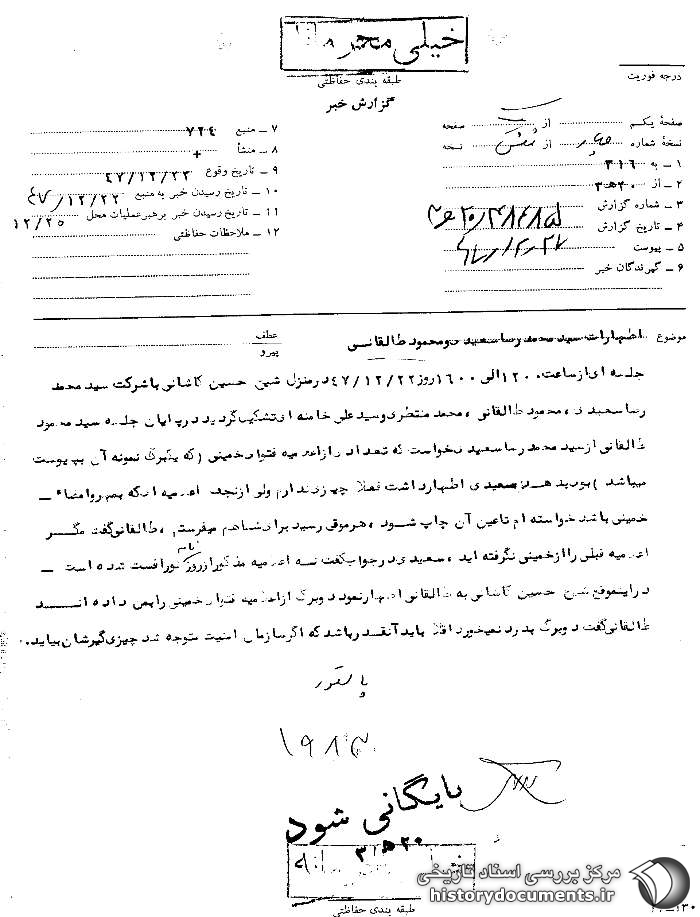 خیلی محر
طبقه بندی حفاظتی
گزارش خبر
درجه فوریت
صفحهٔ یکم از صفحه
نسخهٔ شماره از نسخه
۱ ـ به ۳۱۶
۲ ـ از ۲۰ه‍۳
۳ ـ شماره گزارش
۴ ـ تاریخ گزارش
۵ ـ پیوست
۶ ـ گیرندگان خبر
۷ ـ منبع ۷۲۴
۸ ـ منشأ +
۹ ـ تاریخ وقوع ۴۷/۱۲/۲۲
۱۰ ـ تاریخ رسیدن خبر به منبع ۴۷/۱۲/۲۲
۱۱ ـ تاریخ رسیدن خبر برهبر عملیات محل ۱۲/۲۵
۱۲ ـ ملاحظات حفاظتی
موضوع اظهارات سید محمد رضا سعیدی و محمود طالقانی
عطف
پیرو
جلسه ای از ساعت ۱۲۰۰ الی ۱۶۰۰ روز ۴۷/۱۲/۲۲ در منزل شیخ حسین کاشانی با شرکت سید محمد
رضا سعیدی ، محمود طالقانی ، محمد منتظری و سید علی خامنه ای تشکیل گردید در پایان جلسه سید محمود
طالقانی از سید محمد رضا سعیدی خواست که تعدادی از اعلامیه فتوای خمینی (که یکبرگ نمونه آن بپیوست
میباشد ) بوی بدهد سعیدی اظهار داشت فعلا چیزی ندارم ولی از نجف اعلامیه ایکه بمهر و امضاء ـ
خمینی باشد خواسته ام تا عین آن چاپ شود ، هر موقع رسید برای شما هم میفرستم ، طالقانی گفت مگر
اعلامیه قبلی را از خمینی نگرفته اید ، سعیدی در جواب گفت نه اعلامیه مذکور از روزنامه کور افست شده است ـ
در اینموقع شیخ حسین کاشانی به طالقانی اظهار نمود دو برگ از اعلامیه فتوای خمینی را بمن داده اند
طالقانی گفت دو برگ بدرد نمیخورد اقلا باید آنقدر باشد که اگر سازمان امنیت متوجه شد چیزی گیرشان بیاید .
بایگانی شود
۲۰ه‍۳
طبقه بندی حفاظتی
مرکز بررسی اسناد تاریخی
historydocuments.ir